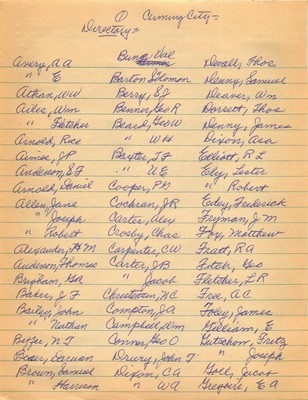 ① Cuming City=
Directory=
Avery, A A
" E
Athan, W W
Ailes, Wm
" Fletcher
Arnold, Rice
Ames, J P
Anderson, S F
Arnold, Daniel
Allen, Jane
" Joseph
" Robert
Alexander, H M
Anderson, Thomas
Brigham, Geo
Baker, J F
Bailey, John
" Nathan
Biffer, N T
Brown, Samuel
" Harrison
Barton Solomon
Berry, S J
Benner, Geo R
Beard, Geo W
" W H
Baxter, J F
" W E
Cooper, P G
Cochran, J R
Carter, Alex
Crosby, Chas
Carpenter, C W
Carter, J B
" Jacob
Christensen, H C
Compton, J A
Campbell, Wm
Conner, Geo O
Drury, John T
Dixon, C A
" W A
Devall, Thos
Denny, Samuel
Deaver, Wm
Dorsett, Thos
Denny, James
Dixon, Asa
Elliott, R L
Ely, Lester
" Robert
Eday, Frederick
Fryman, J M
Fox, Matthew
Fratt, R A
Fitch, Geo
Fletcher, L R
Free, A C
Foley, James
Gilliam, E
Gutschow, Fritz
" Joseph
Goll, Jacob
Gregoire, E A